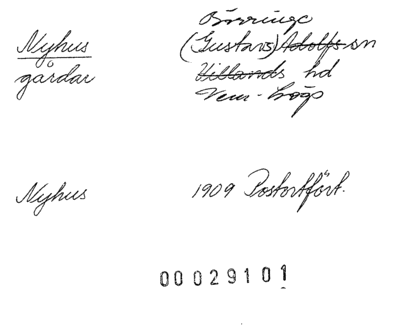 Börringe
Nyhus (Gustavs) Adolfs sn
gårdar Villands hd
Vem-högs
Nyhus 1909 Postortfört.
00029101